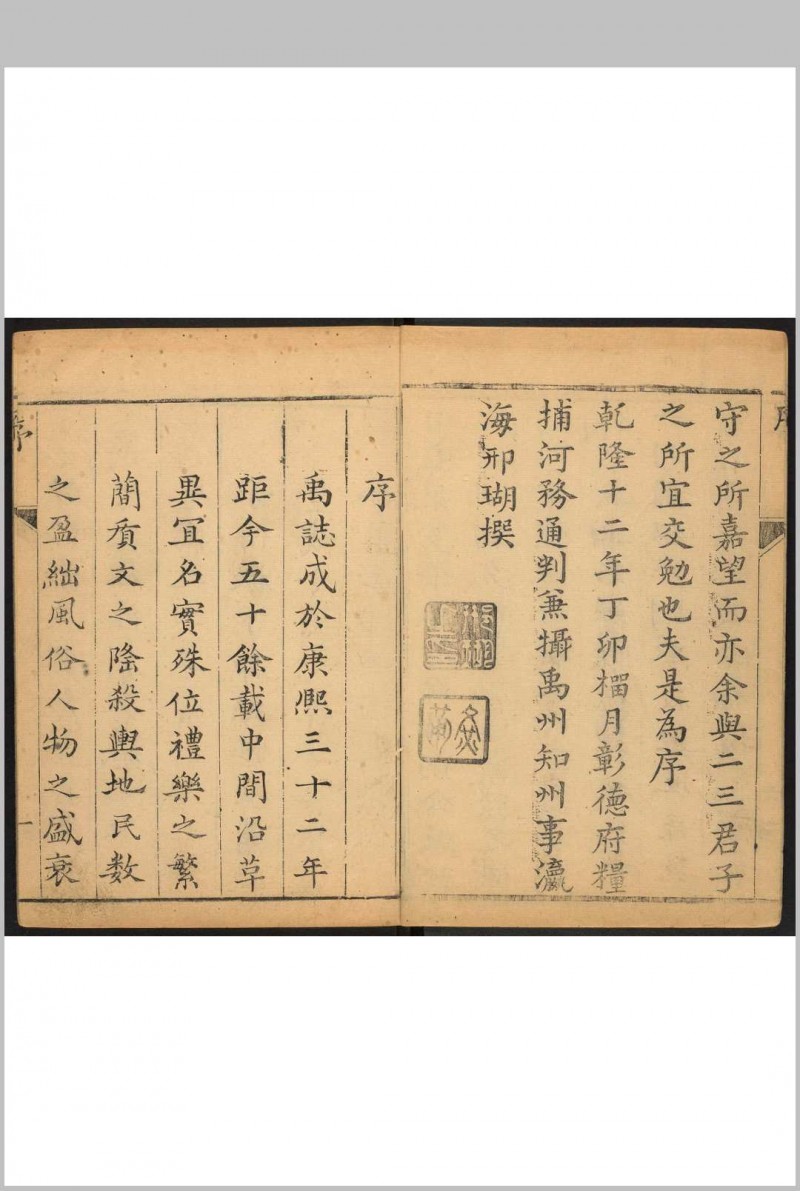 守之所嘉望而亦余與二三君子
之所宜交勉也夫是為序
乾隆十二年丁卯橊月彰德府糧
捕河務通判兼攝禹州知州事瀛
海邢瑚撰
序
禹誌成於康熙三十二年
距今五十餘載中間沿革
異宜名實殊位禮樂之繁
簡質文之隆殺輿地民数
之盈絀風俗人物之盛衰
序
一